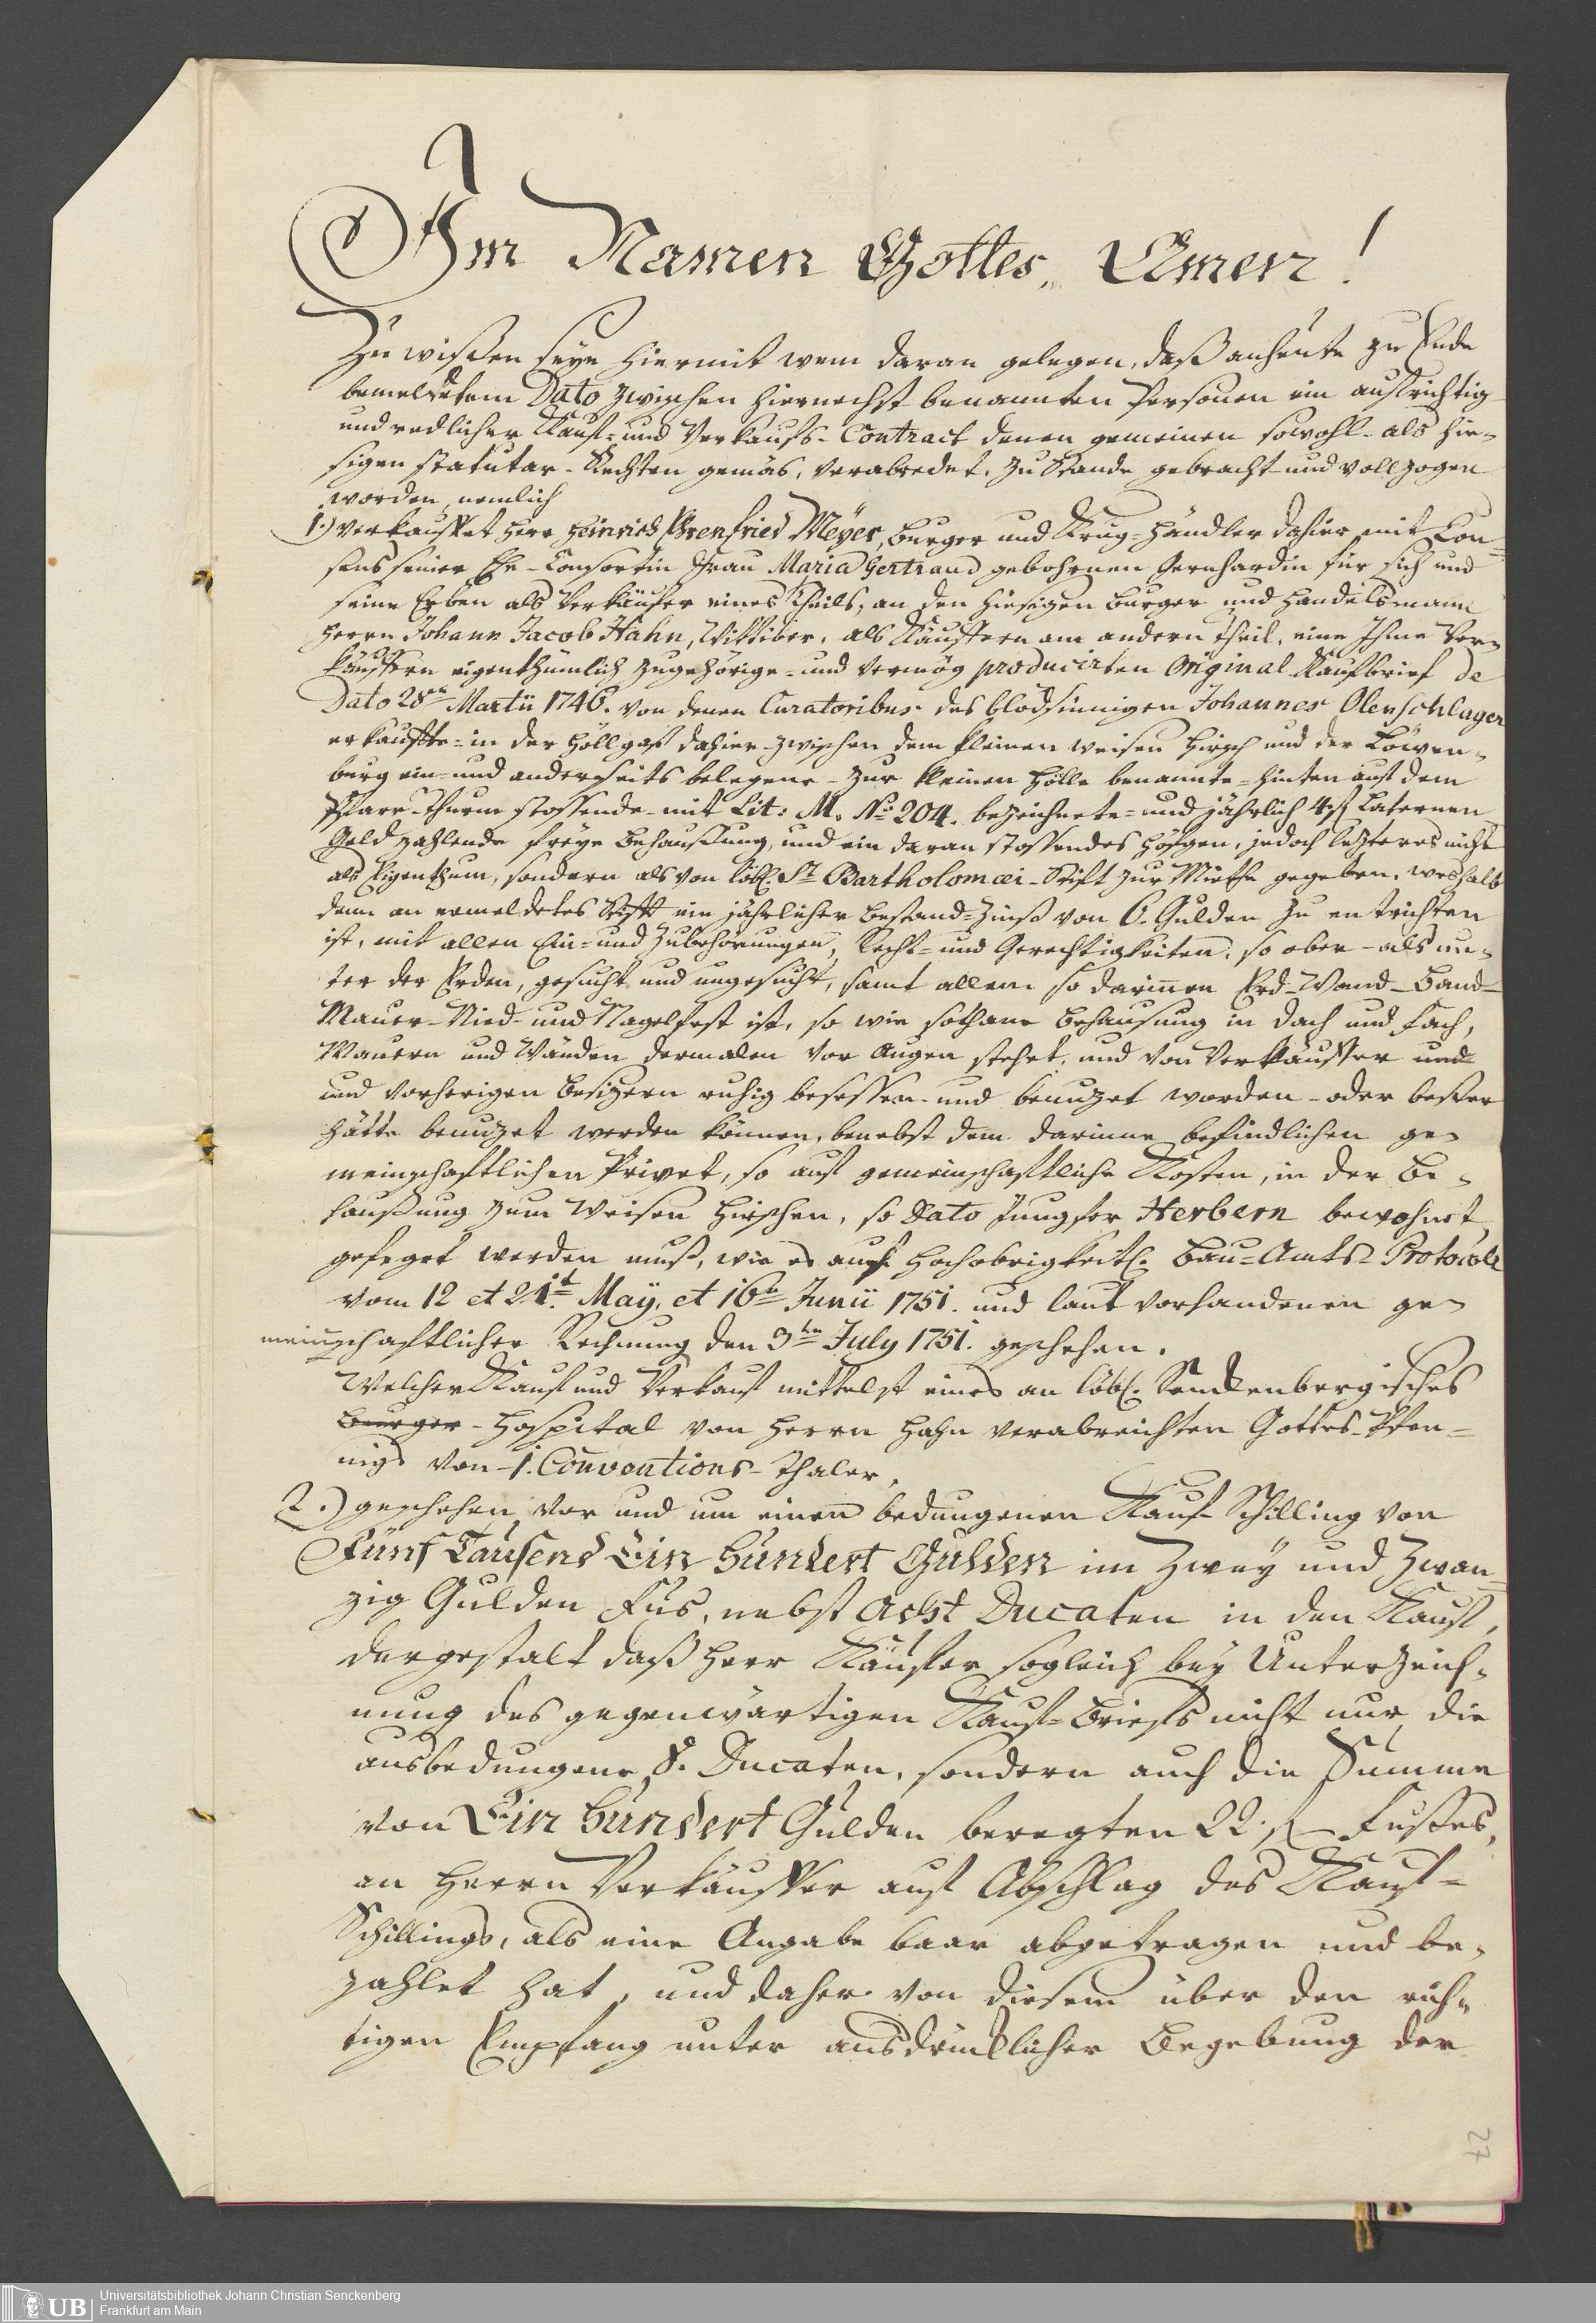 Im Namen Gottes, Amen!
Zu wißen seye hiermit wem daran gelegen, daß anheute zu Ende
bemeldetem Dato zwischen hiernechst benannten Personen ein aufrichtig
und redlicher Kauf- und Verkaufs-Contract denen gemeinen sowohl- als hie-
sigen statutar-Rechten gemäs, verabredet, zu Stande gebracht und vollzogen
worden, nemlich
1.) verkauffet Herr Heinrich Ehrenfried Meÿer, Burger und Krug-Händler dahier mit Con-
sens seiner Ehe-Consortin Frau Maria Gertraud gebohrnen Gernhardin für sich und
seine Erben als Verkäufer eines Theils, an den hiesigen Burger und Handelsmann
Herrn Johann Jacob Hahn, Wittiber, als Käuffern am andern Theil, eine Ihme Ver-
käuffern eigenthümlich zugehörige- und vermög producirten Original-Kaufbrief de
Dato 28ten Martii 1746. von denen Curatoribus des blödsinnigen Johannes Olenschlager
erkauffte- in der Höllgaß dahier zwischen dem kleinen weisen Hirsch und der Löwen-
burg ein- und anderseits belegene- zur kleinen Hölle benannte- hinten auf dem
Pfarr-Thurm stossende- mit Lit: M. No 204. bezeichnete- und jährlich 4 f Laternen
Geld zahlende freye Behaußung, und ein daran stossendes Höfgen, jedoch letzteres nicht
als Eigenthum, sondern als von löbl. St Bartholomæi-Stift zur Miethe gegeben, weshalb
denn an ermeldetes Stift ein jährlicher Bestand-Zinß von 6. Gulden zu entrichten
ist, mit allen Ein- und Zubehörungen, Recht- und Gerechtigkeiten, so ober- als un-
ter der Erden, gesucht und ungesucht, samt allem so darinnen Erd-Wand-Band-
Mauer-Nied- und Nagelfest ist, so wie sothane Behausung in Dach und Fach,
Mauern und Wänden dermalen vor Augen stehet, und von Verkäuffer und
und vorherigen Besizern ruhig besessen- und benuzet worden- oder besser
hätte benuzet werden können, benebst dem darinne befindlichen ge-
meinschaftlichen Privet, so auf gemeinschaftliche Kosten, in der Be-
haußung zum Weisen Hirschen, so Dato Jungfer Herbern bewohnet,
gefeget werden muß, wie es auch Hochobrigkeitl. Bau-Amts-Protocoll
vom 12 et 21t. Maÿ, et 16n Junii 1751. und laut vorhandenen ge-
meinschaftlicher Rechnung den 3ten July 1751. geschehen.
Welcher Kauf und Verkauf mittelst eines an löbl. Senckenbergisches
Burger-Hospital von Herrn Hahn verabreichten Gottes-Pfen-
nigs von 1. Conventions-Thaler,
2.) geschehen vor und um einen bedungenen Kauf-Schilling von
Fünf Tausend Ein Hundert Gulden im Zweÿ und Zwan-
zig Gulden Fus, nebst Acht Ducaten in den Kauf,
dergestalt daß Herr Käufer sogleich beÿ Unterzeich-
nung des gegenwärtigen Kauf-Briefs nicht nur die
ausbedungene 8. Ducaten, sondern auch die Summe
von Ein Hundert Gulden beregten 22. f Fusses,
an Herrn Verkäuffer auf Abschlag des Kauf-
Schillings, als eine Angabe baar abgetragen und be-
zahlet hat, und daher von diesem über den rich-
tigen Empfang unter ausdrücklicher Begebung der
27
UB Universitätsbibliothek Johann Christian Senckenberg
Frankfurt am Main